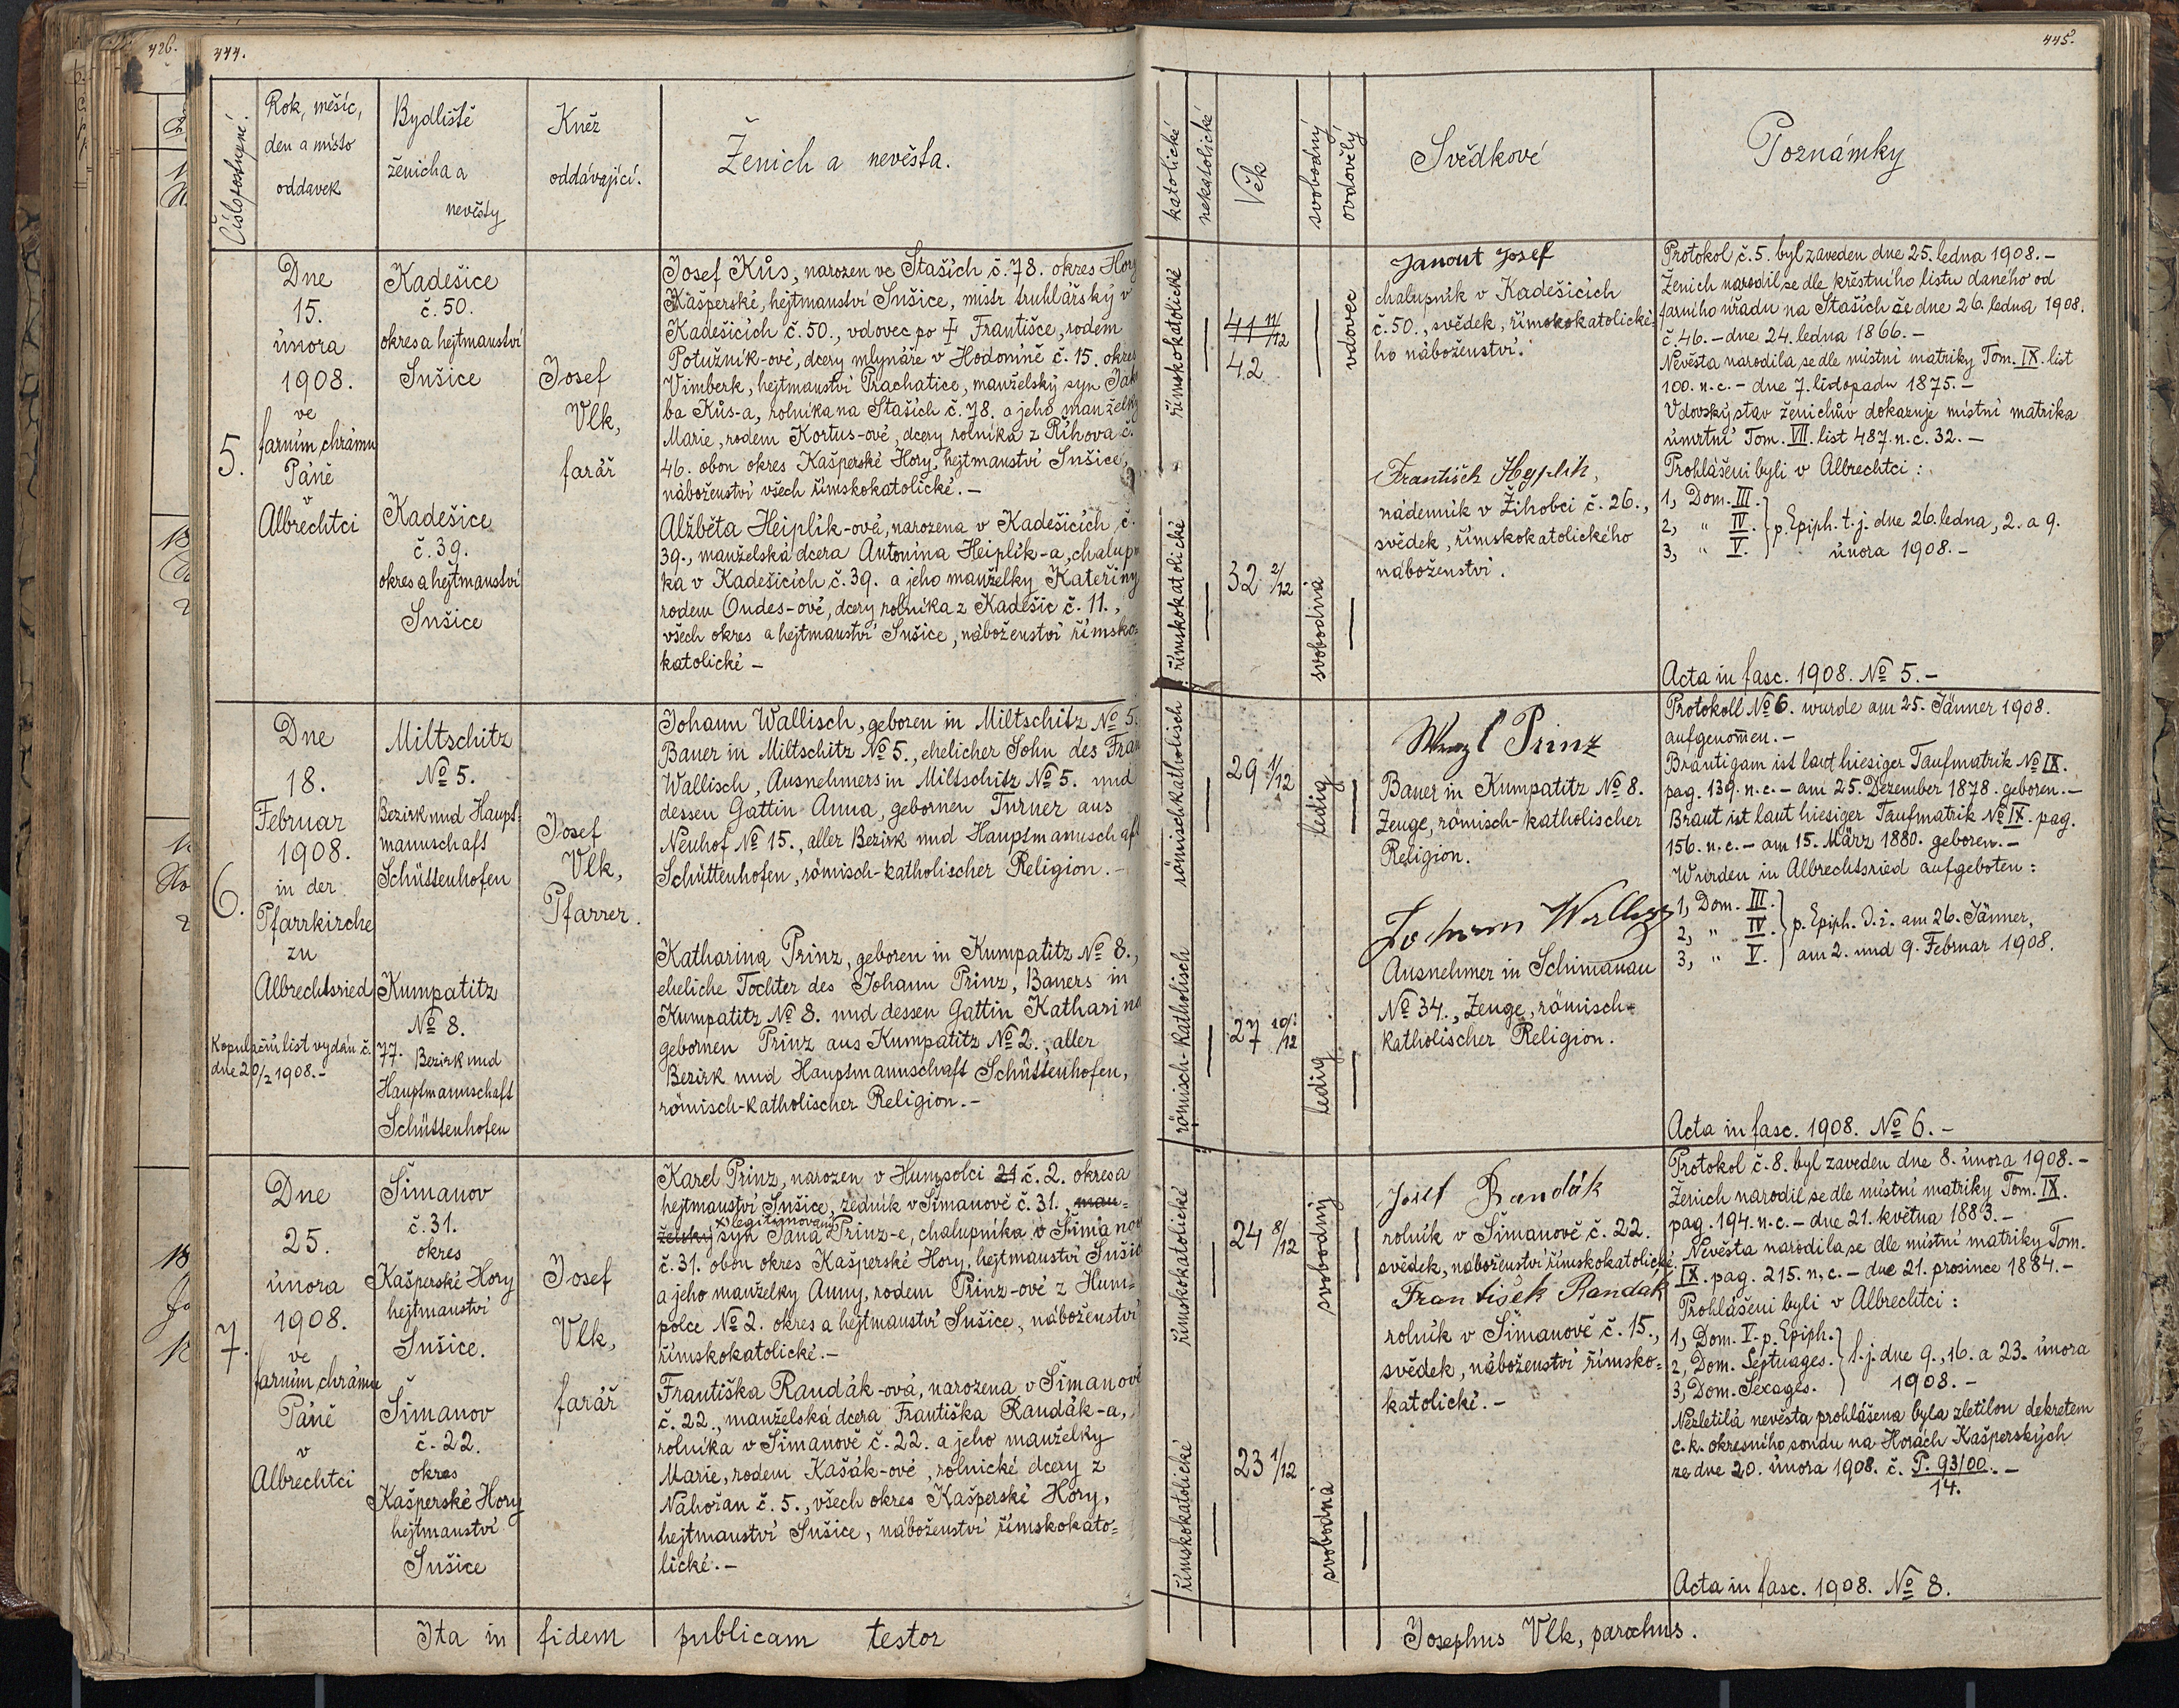 426.
444.
Číslo postupné.
Rok, měsíc,
den a místo
oddavek
Bydliště
ženicha a
nevěsty
Kněz
oddávající.
Ženich a nevěsta.
5.
Dne
15.
února
1908.
ve
farním chrámu
Páně
v
Albrechtci
Kadešice
č. 50.
okres a hejtmanství
Sušice
Kadešice
č. 39.
okres a hejtmanství
Sušice
Josef
Vlk,
farář
Josef Kůs, narozen ve Staších č. 78. okres Hory
Kašperské, hejtmanství Sušice, mistr truhlářský v
Kadešicích č. 50., vdovec po † Františce, rodem
Potužník-ové, dcery mlynáře v Hodoníně č. 15. okres
Vimberk, hejtmanství Prachatice, manželský syn Jaku
ba Kůs-a, rolníka na Staších č. 78. a jeho manželky
Marie, rodem Kortus-ové, dcery rolníka z Říhova č.
46. obou okres Kašperské Hory, hejtmanství Sušice,
náboženství všech římskokatolické. –
Alžběta Heiplík-ová, narozena v Kadešicích č.
39., manželská dcera Antonína Heiplík-a, chalupn
ka v Kadešicích č. 39. a jeho manželky Kateřiny
rodem Oudes-ové, dcery rolníka z Kadešic č. 11.,
všech okres a hejtmanství Sušice, náboženství římsko=
katolické –
6.
Dne
18.
Februar
1908.
in der
Pfarrkirche
zu
Albrechtsried
Kopulační list vydán č. 77.
dne 20/2 1908. –
Miltschitz
No 5.
Bezirk und Haupt=
mannschaft
Schüttenhofen
Kumpatitz
No 8.
Bezirk und
Hauptmannschaft
Schüttenhofen
Josef
Vlk,
Pfarrer.
Johann Wallisch, geboren in Miltschitz No 5.
Bauer in Miltschitz No 5., ehelicher Sohn des Fran
Wallisch, Ausnehmers in Miltschitz No 5. und
dessen Gattin Anna, gebornen Turner aus
Neuhof No 15., aller Bezirk und Hauptmannschaft
Schüttenhofen, römisch-katholischer Religion. –
Katharina Prinz, geboren in Kumpatitz No 8.,
eheliche Tochter des Johann Prinz, Bauers in
Kumpatitz No 8. und dessen Gattin Katharina
gebornen Prinz aus Kumpatitz No 2., aller
Bezirk und Hauptmannschaft Schüttenhofen,
römisch-katholischer Religion. –
7.
Dne
25.
února
1908.
ve
farním chrámu
Páně
v
Albrechtci
Šimanov
č. 31.
okres
Kašperské Hory
hejtmanství
Sušice.
Šimanov
č. 22.
okres
Kašperské Hory
hejtmanství
Sušice
Josef
Vlk,
farář
Karel Prinz, narozen v Humpolci 21 č. 2. okres a
hejtmanství Sušice, zedník v Šimanově č. 31., man=
x) legitimovaný
želský syn Jana Prinz-e, chalupníka v Šimanov
č. 31. obou okres Kašperské Hory, hejtmanství Sušice
a jeho manželky Anny, rodem Prinz-ové z Hum=
polce No 2. okres a hejtmanství Sušice, náboženství
římskokatolické. –
Františka Randák-ová, narozena v Šimanově
č. 22., manželská dcera Františka Randák-a,
rolníka v Šimanově č. 22. a jeho manželky
Marie, rodem Kašák-ové, rolnické dcery z
Nahořan č. 5., všech okres Kašperské Hory,
hejtmanství Sušice, náboženství římskokato=
lické. –
Ita in fidem publicam testor
445.
katolické
nekatolické
Věk
svobodný
ovdovělý
Svědkové
Poznámky
římskokatolické
41 11/12
42
vdovec
římskokatolické
32 2/12
svobodná
Janout Josef
chalupník v Kadešicích
č. 50., svědek, římskokatolické=
ho náboženství.
František Heyplík,
nádenník v Žihobci č. 26.,
svědek, římskokatolického
náboženství.
Protokol č. 5. byl zaveden dne 25. ledna 1908. –
Ženich narodil se dle křestního listu daného od
farního úřadu na Staších če dne 26. ledna 1908.
č. 46. – dne 24. ledna 1866. –
Nevěsta narodila se dle místní matriky Tom. IX. list
100. n. c. – dne 7. listopadu 1875. –
Vdovský stav ženichův dokazuje místní matrika
úmrtní Tom. VII. list 487. n. c. 32. –
Prohlášeni byli v Albrechtci:
1, Dom. III.
2, " IV. p. Epiph. t. j. dne 26. ledna, 2. a 9.
3, " V. února 1908. –
Acta in fasc. 1908. No 5. –
römisch-katholisch
29 1/12
ledig
römisch-katholisch
27 10/12
ledig
Wenzl Prinz
Bauer in Kumpatitz No 8.
Zeuge, römisch-katholischer
Religion.
Johann
Ausnehmer in Schimanau
No 34., Zeuge, römisch=
katholischer Religion.
Protokoll No 6. wurde am 25. Jänner 1908.
aufgenom̄en. –
Bräutigam ist laut hiesiger Taufmatrik No IX.
pag. 139. n. c. – am 25. Dezember 1878. geboren. –
Braut ist laut hiesiger Taufmatrik No IX. pag.
156. n. c. – am 15. März 1880. geboren. –
Wurden in Albrechtsried aufgeboten:
1, Dom. III.
2, " IV. p. Epiph. d. i. am 26. Jänner,
3, " V. am 2. und 9. Februar 1908.
Acta in fasc. 1908. No 6. –
římskokatolické
24 8/12
svobodný
římskokatolické
23 1/12
svobodná
Josef Randák
rolník v Šimanově č. 22.
svědek, náboženství římskokatolické.
František Randák
rolník v Šimanově č. 15.,
svědek, náboženství římsko=
katolické. –
Protokol č. 8. byl zaveden dne 8. února 1908. –
Ženich narodil se dle místní matriky Tom. IX.
pag. 194. n. c. – dne 21. května 1883. –
Nevěsta narodila se dle místní matriky Tom.
IX. pag. 215. n. c. – dne 21. prosince 1884. –
Prohlášeni byli v Albrechtci:
1, Dom. V. p. Epiph.
2, Dom. Septuages. t. j. dne 9., 16. a 23. února
3, Dom. Sexages. 1908. –
Nezletilá nevěsta prohlášena byla zletilou dekretem
c. k. okresního soudu na Horách Kašperských
ze dne 20. února 1908. č. P. 93/00. –
14.
Acta in fasc. 1908. No 8.
Josephus Vlk, parochus.